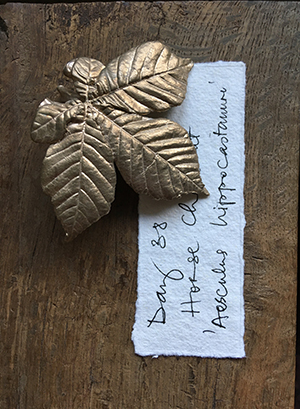 Day 38
Horse Ch t
'Aesculus hippocastanum'